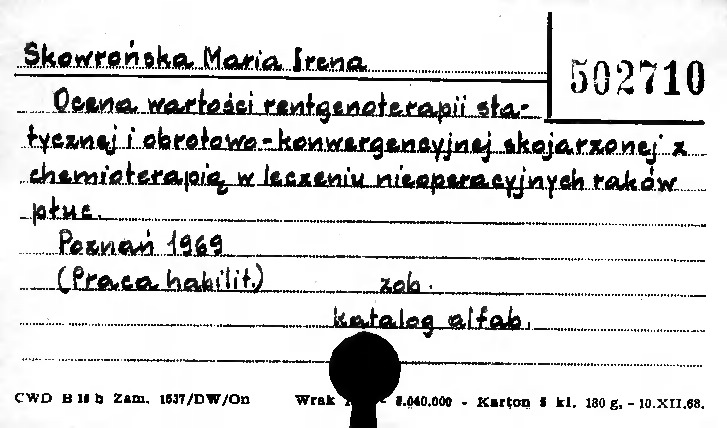 Skowrońska Maria Irena
502710
Ocena wartości rentgenoterapii sta-
tycznej i obrotowo-konwergencyjnej skojarzonej z
chemioterapią w leczeniu nieoperacyjnych raków
płuc.
Poznań 1969
(Praca habilit.) zob.
katalog alfab.
CWD B 18 b Zam. 1637/DW/On Wrak - 8.040.000 - Karton 8 kl. 180 g. - 10.XII.68.